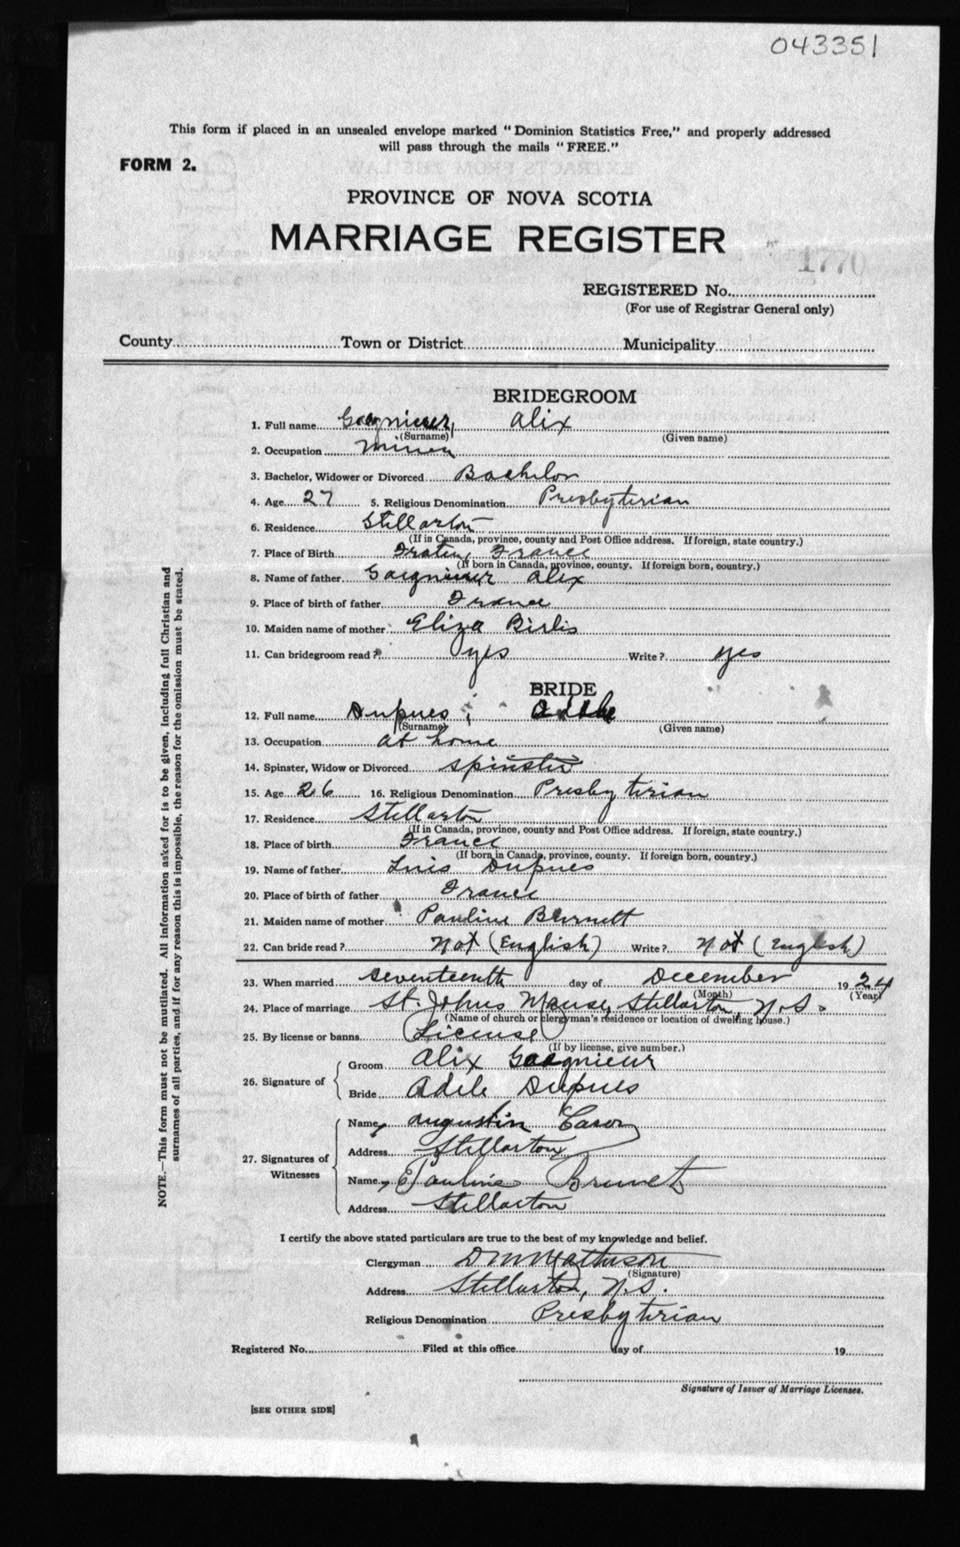 043351
This form if placed in an unsealed envelope marked "Dominion Statistics Free," and properly addressed
will pass through the mails "FREE."
FORM 2.
PROVINCE OF NOVA SCOTIA
MARRIAGE REGISTER
1770
REGISTERED No.
(For use of Registrar General only)
County Town or District Municipality
BRIDEGROOM
1. Full name Gaegnieur, Alix
(Surname) (Given name)
2. Occupation Miner
3. Bachelor, Widower or Divorced Bachelor
4. Age 27 5. Religious Denomination Presbyterian
6. Residence Stellarton
(If in Canada, province, county and Post Office address. If foreign, state country.)
7. Place of Birth France
(If born in Canada, province, county. If foreign born, country.)
8. Name of father Gaegnieur Alix
9. Place of birth of father France
10. Maiden name of mother Eliza Birlis
11. Can bridegroom read? yes Write? yes
BRIDE
12. Full name Dupues, Adele
(Surname) (Given name)
13. Occupation at home
14. Spinster, Widow or Divorced Spinster
15. Age 26 16. Religious Denomination Presbyterian
17. Residence Stellarton
(If in Canada, province, county and Post Office address. If foreign, state country.)
18. Place of birth France
(If born in Canada, province, county. If foreign born, country.)
19. Name of father Luis Dupues
20. Place of birth of father France
21. Maiden name of mother Pauline Burnett
22. Can bride read? Not (English) Write? Not (English)
23. When married seventeenth day of December 1924
(Month) (Year)
24. Place of marriage St. Johns Manse, Stellarton, N.S.
(Name of church or clergyman's residence or location of dwelling house.)
25. By license or banns License
(If by license, give number.)
26. Signature of
Groom Alix Gaegnieur
Bride Adele Dupues
27. Signatures of Witnesses
Name Augustin Caron
Address Stellarton
Name Pauline Brunet
Address Stellarton
I certify the above stated particulars are true to the best of my knowledge and belief.
Clergyman D M Matheson
(Signature)
Address Stellarton, N.S.
Religious Denomination Presbyterian
Registered No. Filed at this office day of 19
Signature of Issuer of Marriage Licenses.
[SEE OTHER SIDE]
NOTE.—This form must not be mutilated. All information asked for is to be given, including full Christian and
surnames of all parties, and if for any reason this is impossible, the reason for the omission must be stated.